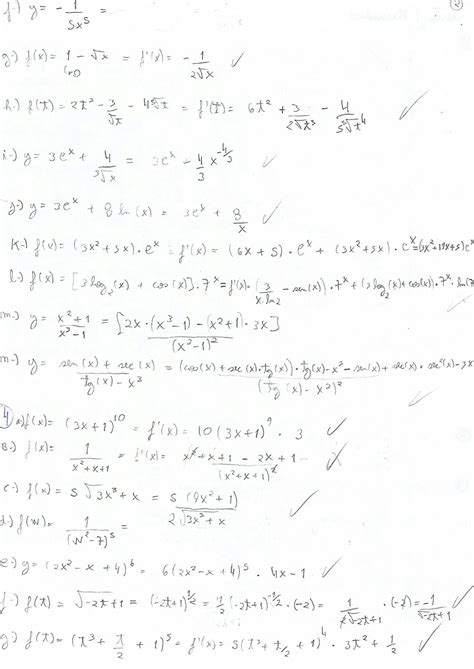 ②
f-) y = - 1/5x⁵ =
g-) f(x) = 1 - √x = f'(x) = - 1/2√x ✓
h-) f(t) = 2t³ - 3/√t - 4⁵√t = f'(t) = 6t² + 3/2√t³ - 4/5⁵√t⁴ ✓
i-) y = 3eˣ + 4/³√x = 3eˣ - 4/3 x^-4/3 ✓
j-) y = 3eˣ + 8 ln(x) = 3eˣ + 8/x ✓
k-) f(x) = (3x² + 5x) . eˣ = f'(x) = (6x + 5) . eˣ + (3x² + 5x) . eˣ
l-) f(x) = [3 log₂(x) + cos(x)] . 7ˣ = f'(x) = (3/x.ln2 - sen(x)) . 7ˣ + (3 log₂(x) + cos(x)) . 7ˣ . ln(7
m-) y = x² + 1/x³ - 1 = [2x . (x³ - 1) - (x² + 1) . 3x]/(x³ - 1)²
n-) y = sen(x) + sec(x)/tg(x) - x³ = (cos(x) + sec(x) . tg(x)) . tg(x) - x³ - sen(x) + sec(x) . sec²(x) - 3x/(tg(x) - x³)²
4 a-) f(x) = (3x + 1)¹⁰ = f'(x) = 10(3x + 1)⁹ . 3 ✓
B-) f(x) = 1/x² + x + 1 = f'(x) = x² + x + 1 - 2x + 1/(x² + x + 1)²
c-) f(x) = 5√3x³ + x = 5(9x² + 1)/2√3x³ + x ✓
d-) f(w) = 1/(w² - 7)⁵ =
e-) y = (2x² - x + 4)⁶ = 6(2x² - x + 4)⁵ . 4x - 1 ✓
f-) f(t) = √-2t + 1 = (-2t + 1)^1/2 = 1/2 (-2t + 1)^-1/2 . (-2) = 1/2√-2t + 1 . (-2) = -1/√-2t + 1 ✓
g-) f(t) = (t³ + t/2 + 1)⁵ = f'(x) = 5(t³ + t/2 + 1)⁴ . 3t² + 1/2 ✓